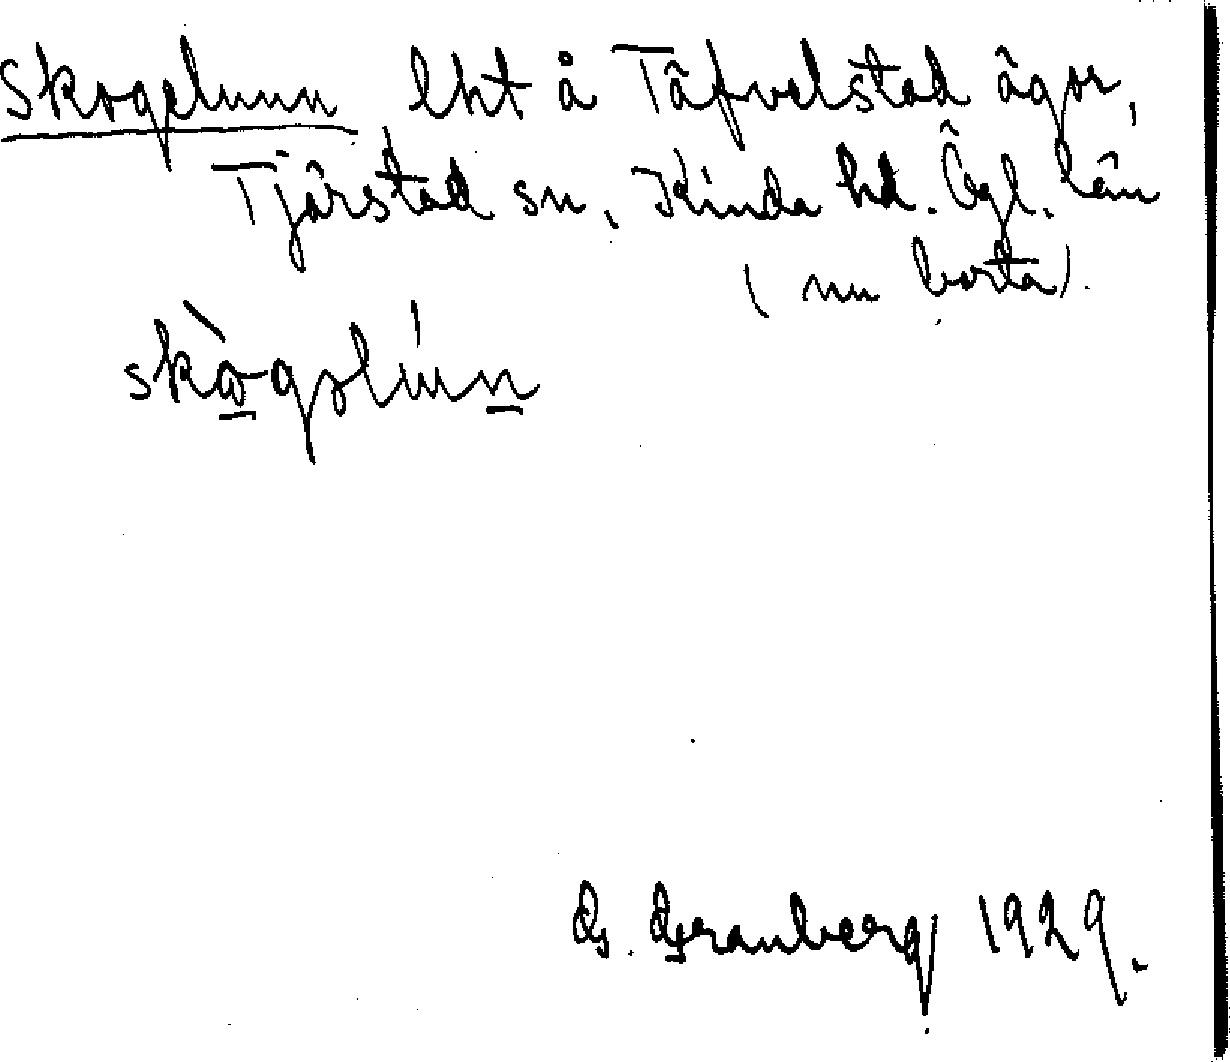 Skogelunn lht å Täfvelstad ägor,
Tjärstad sn, Kinda hd. Ögl. län
(nu borta).
skògəlúnn
G. Granberg 1929.